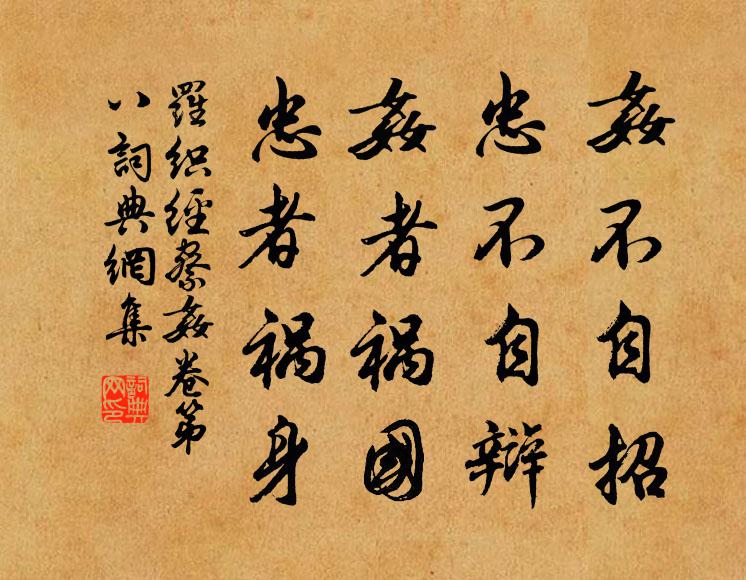 姦不自招
忠不自辯
姦者祸國
忠者祸身
羅织經察姦卷第
八詞典網集
詞典网印